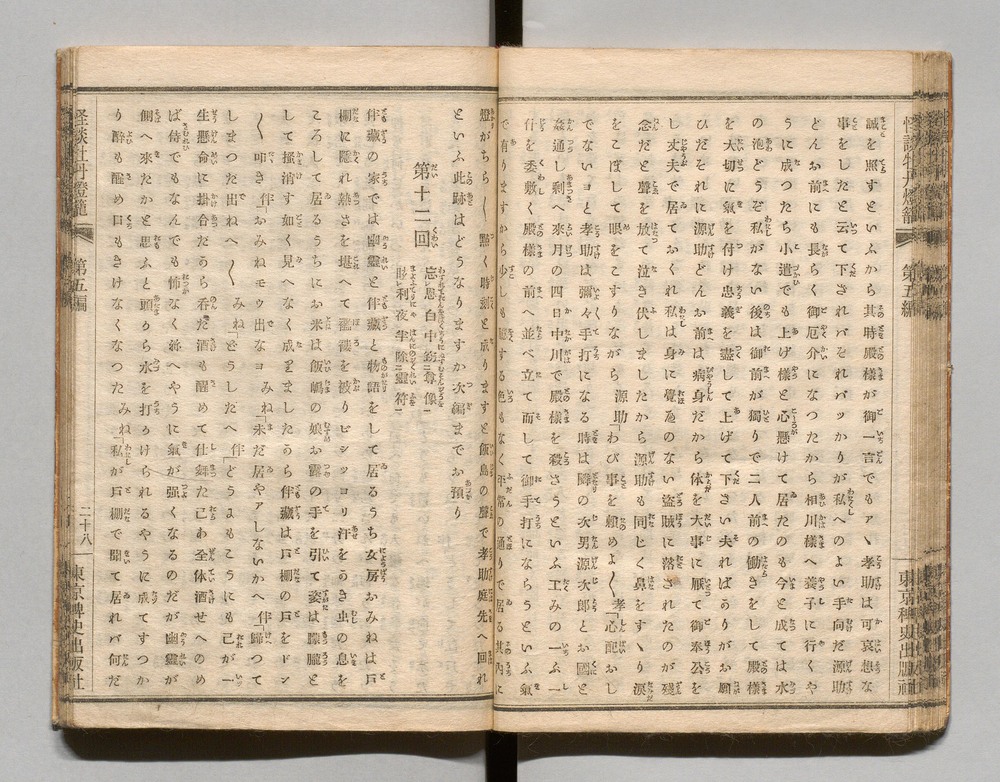 怪談牡丹燈籠
第五編
東京稗史出版社
誠を照すといふから其時殿様が御一言でもアヽ孝助は可哀想な
事をしたと云て下されバそれバッかりが私へのよい手向だ源助
どんお前にも長らく御厄介になつたから相川様へ養子に行くや
うに成つたら小遣でも上げ様と心懸けて居たのも今と成ては水
の泡どうぞ私がない後は御前が独りで二人前の働きをして殿様
を大切に氣を付け忠義を盡して上げて下さい夫ればかりがお願
ひだそれに源助どんお前は病身だから体を大事に厭て御奉公を
し丈夫で居ておくれ私は身に覺ゑのない盗賊に落されたのが殘
念だと聲を放て泣き伏しましたから源助も同じく鼻をすヽり涙
をこぼして眼をこすりながら 源助「わび事を頼めよ〱 孝「心配おし
でないヨと孝助は彌々手打になる時は隣の次男源次郎とお國と
姦通し剰へ來月の四日中川で殿様を殺さうといふ工みの一ふ一
什を委敷く殿様の前へ並べ立て而して御手打にならうといふ氣
で有りますから少しも臆する色もなく平常の通りで居る其内に
燈がちら〱點く時刻と成りますと飯島の聲で孝助庭先へ回れ
といふ此跡はどうなりますか次編までお預り
第十二回
忘恩白中鋳尊像
財利夜半除靈符
伴藏の家では幽靈と伴藏と物語をして居るうち女房おみねは戸
棚に隠れ熱さを堪へて襤褸を被りビッショリ汗をかき虫の息を
ころして居るうちにお米は飯嶋の娘お露の手を引いて姿は朦朧と
して掻消す如く見へなく成ましたから伴藏は戸棚の戸をドン
〱叩き 伴「おみねモウ出なヨ みね「未だ居やアしないかへ 伴「歸つて
しまつた出ねへ〱 みね「どうしたへ 伴「どうもこうにも己が一
生懸命に掛合たから呑だ酒も醒めて仕舞た己ア全体酒せへのめ
ば侍でもなんでも怖なく絲へやうに氣が强くなるのだが幽靈が
側へ來たかと思ふと頭から水を打ちかけられるやうに成てすつか
り醉も醒め口もきけなくなつた みね「私が戸棚で聞て居れバ何だ
怪談牡丹燈籠
第五編
二十八
東京稗史出版社